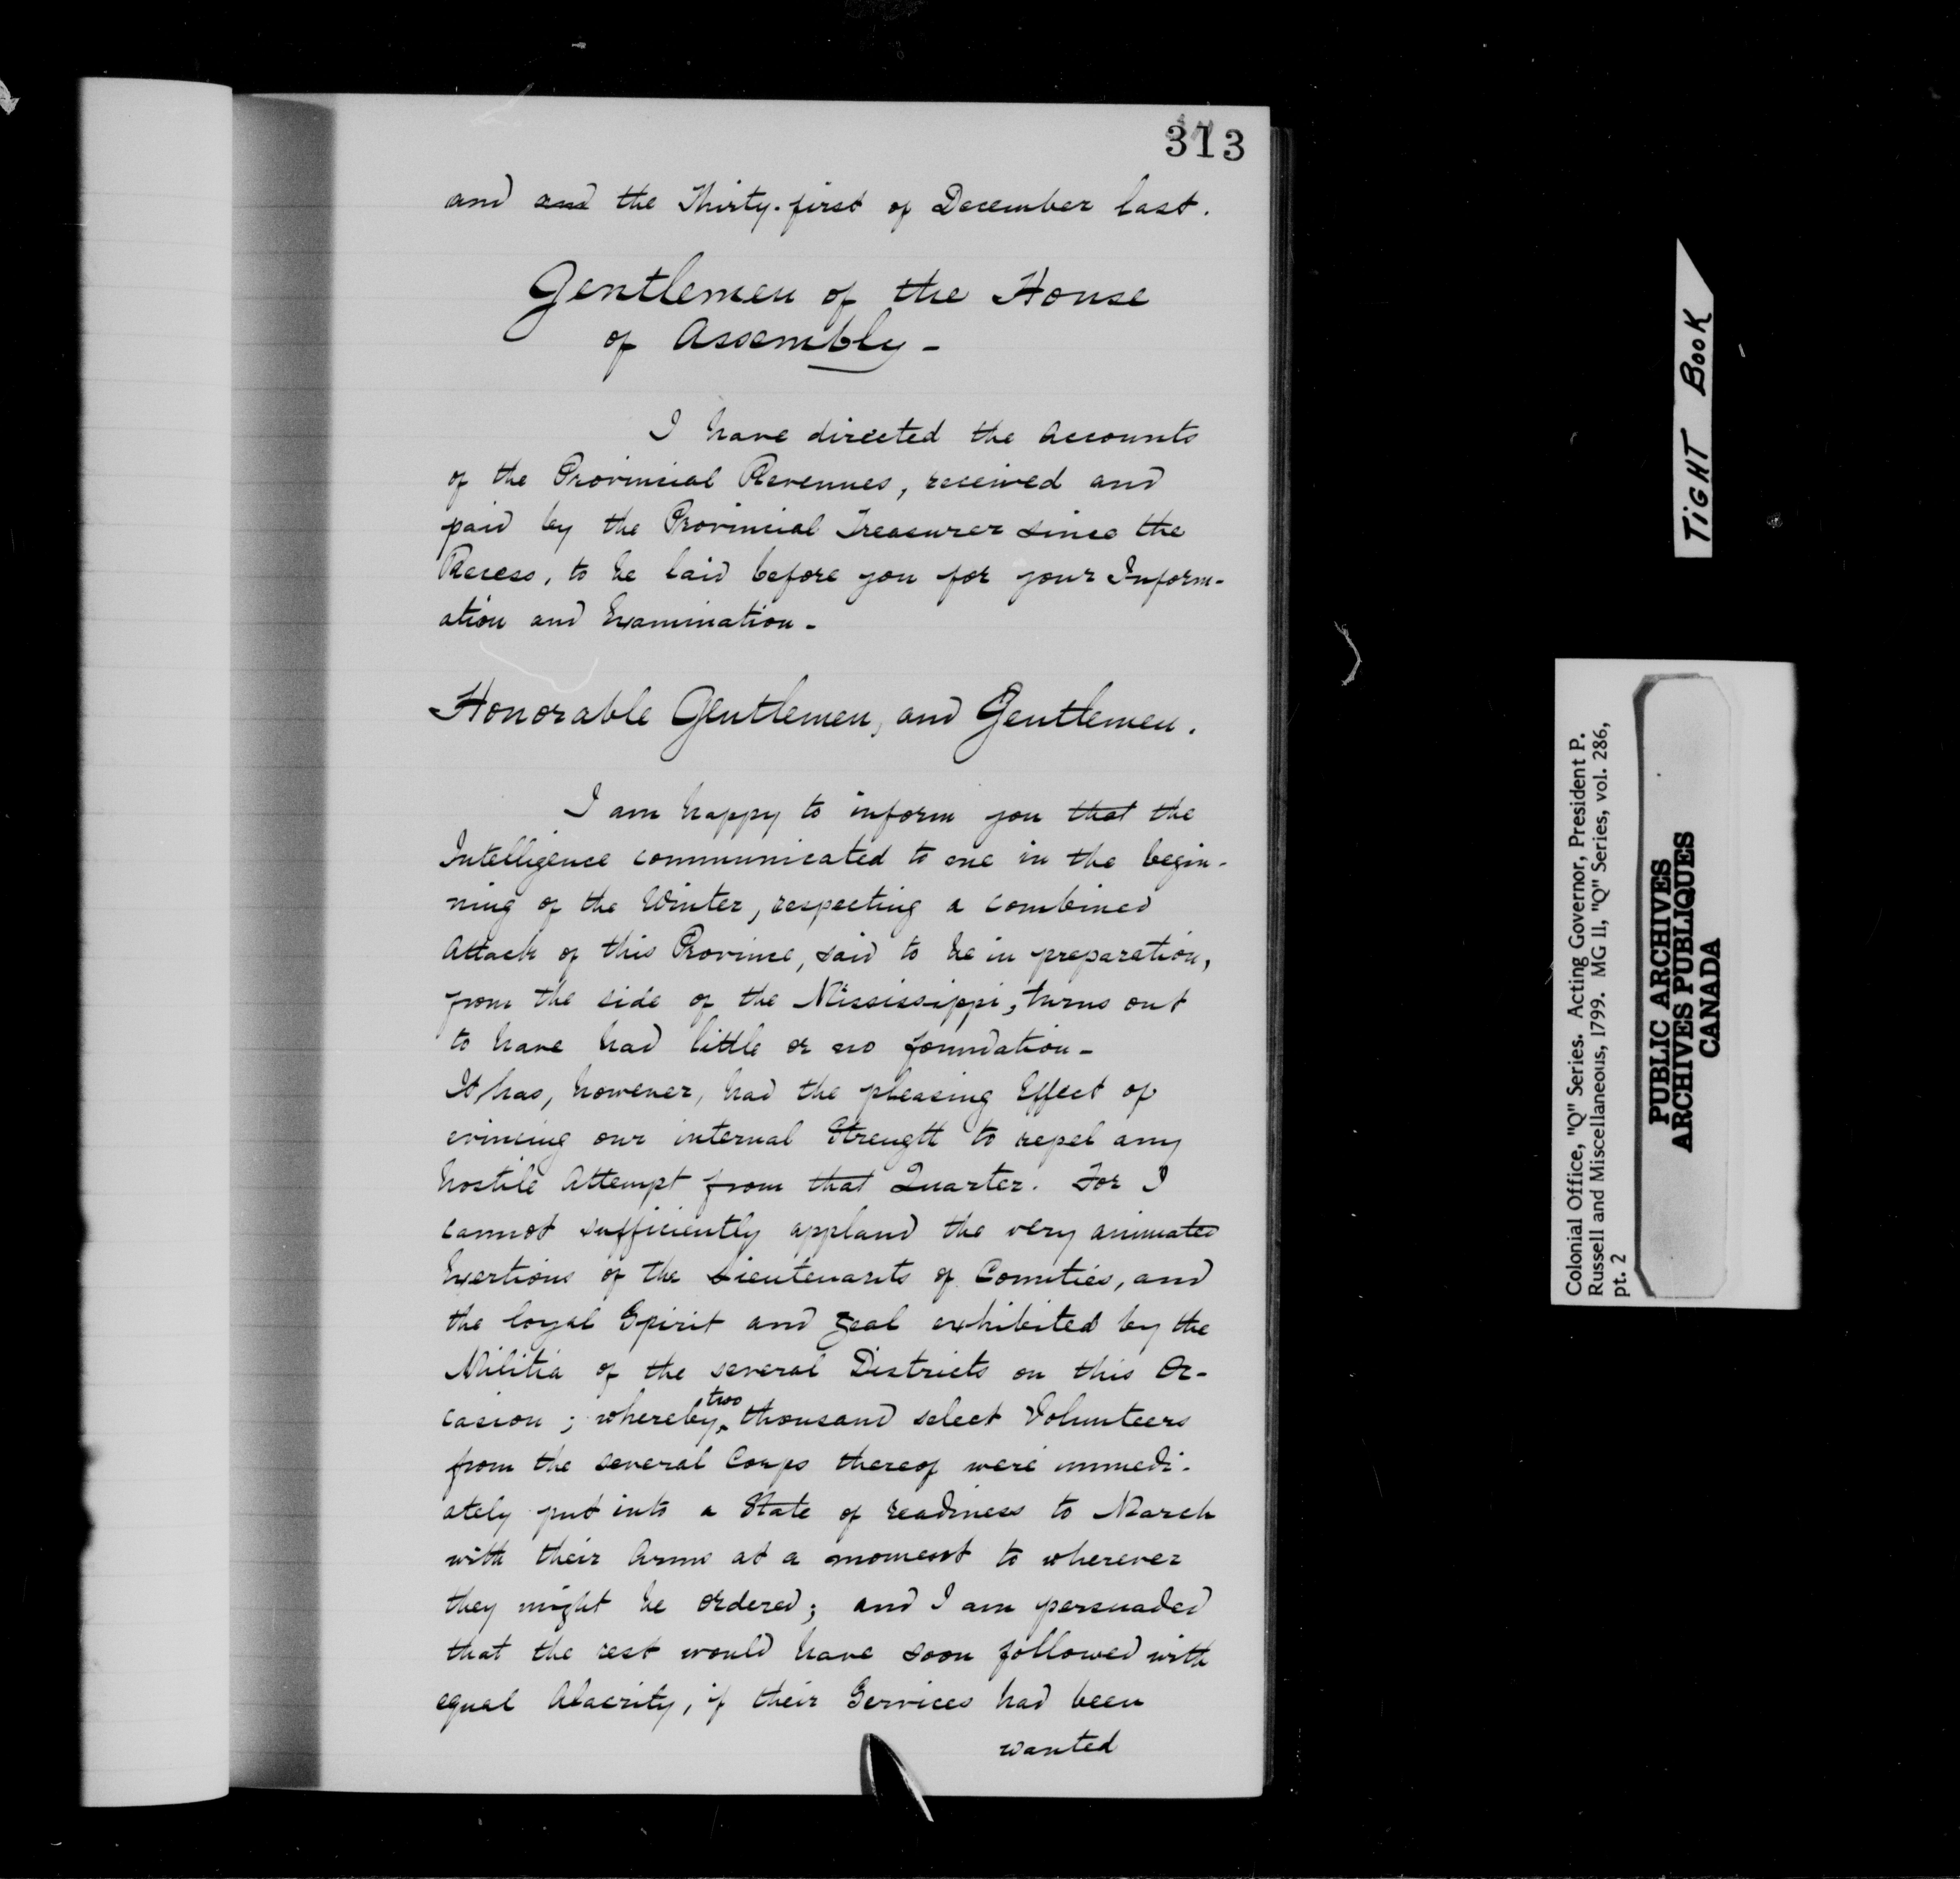 313
and and the Thirty-first of December last.
Gentlemen of the House
of Assembly -
I have directed the Accounts
of the Provincial Revenues, received and
paid by the Provincial Treasurer since the
Recess, to be laid before you for your Inform-
ation and Examination -
Honorable Gentlemen, and Gentlemen.
I am happy to inform you that the
Intelligence communicated to me in the begin-
ning of the Winter, respecting a combined
Attack of this Province, said to be in preparation,
from the side of the Mississippi, turns out
to have had little or no foundation -
It has, however, had the pleasing Effect of
evincing our internal Strength to repel any
hostile Attempt from that Quarter. For I
cannot sufficiently applaud the very animated
Exertions of the Lieutenants of Counties, and
the loyal Spirit and Zeal exhibited by the
Militia of the several Districts on this Oc-
casion; whereby two thousand select Volunteers
from the several Corps thereof were immedi-
ately put into a State of readiness to March
with their Arms at a moment to wherever
they might be ordered; and I am persuaded
that the rest would have soon followed with
equal Alacrity, if their Services had been
wanted
TIGHT BOOK
Colonial Office, "Q" Series. Acting Governor, President P.
Russell and Miscellaneous, 1799. MG 11, "Q" Series, vol. 286,
pt. 2
PUBLIC ARCHIVES
ARCHIVES PUBLIQUES
CANADA